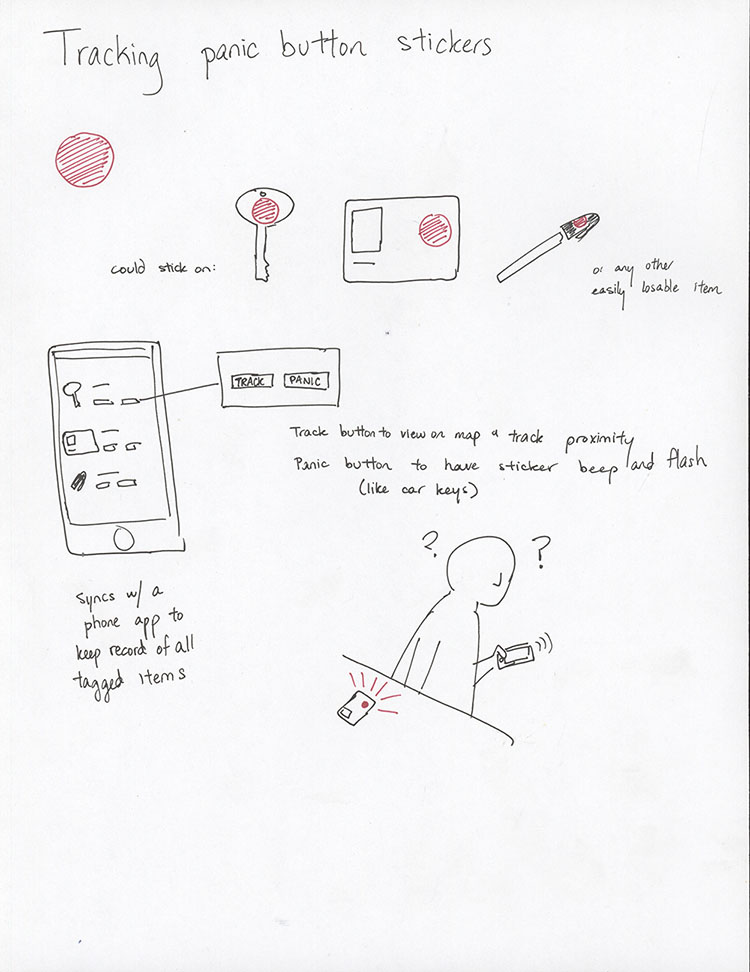 Tracking panic button stickers
could stick on:
or any other
easily losable item
TRACK PANIC
Track button to view on map & track proximity
Panic button to have sticker beep and flash
(like car keys)
? ?
Syncs w/ a
phone app to
keep record of all
tagged items